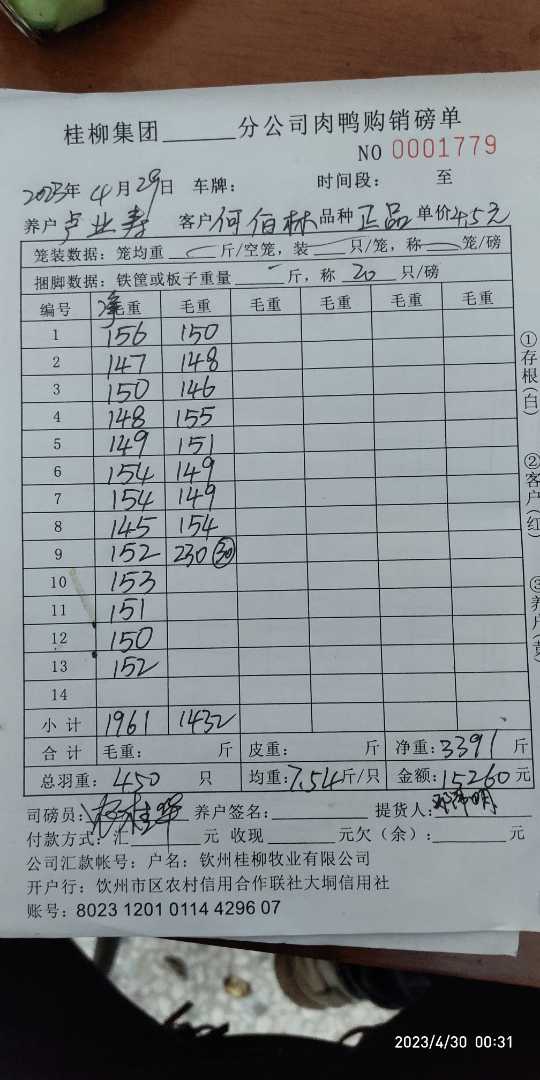 桂柳集团______分公司肉鸭购销磅单
NO 0001779
2023年 4月29日 车牌: 时间段: 至
养户 卢业寿 客户 何伯林 品种 正品 单价4.5元
笼装数据: 笼均重 斤/空笼, 装 只/笼, 称 笼/磅
捆脚数据: 铁筐或板子重量 斤, 称 20 只/磅
编号 净毛重 毛重 毛重 毛重 毛重 毛重
1 156 150
2 147 148
3 150 146
4 148 155
5 149 151
6 154 149
7 154 149
8 145 154
9 152 230 30
10 153
11 151
12 150
13 152
14
小计 1961 1432
合计 毛重: 斤 皮重: 斤 净重: 3391 斤
总羽重: 450 只 均重: 7.54斤/只 金额: 15260元
司磅员: 养户签名: 提货人:
付款方式: 汇______元 收现______元欠(余):______元
公司汇款帐号: 户名: 钦州桂柳牧业有限公司
开户行: 钦州市区农村信用合作联社大垌信用社
账号: 8023 1201 0114 4296 07
①存根(白)
②客户(红)
③养户(黄)
2023/4/30 00:31